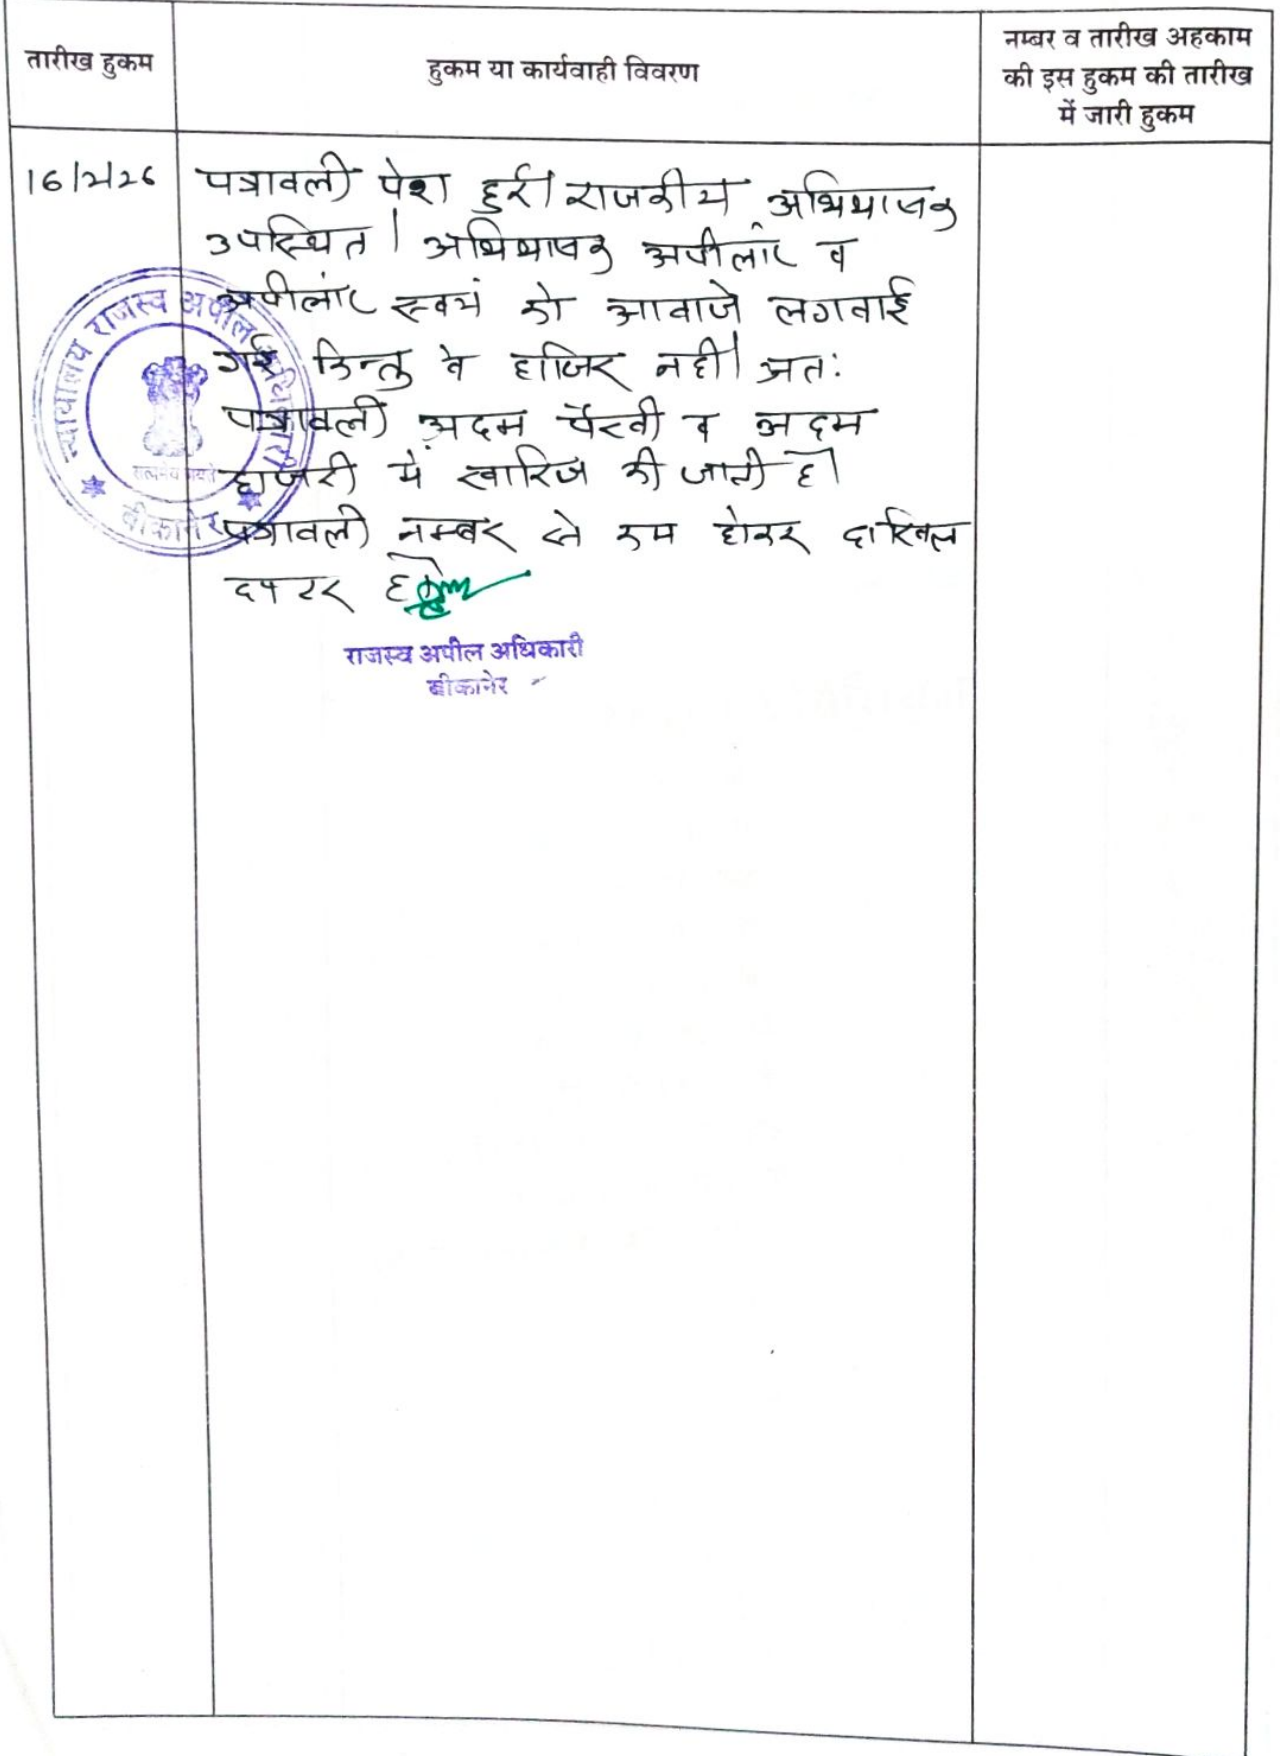 तारीख हुकम
हुकम या कार्यवाही विवरण
नम्बर व तारीख अहकाम
की इस हुकम की तारीख
में जारी हुकम
16/2/26
पत्रावली पेश हुई। राजकीय अभिभाषक
उपस्थित। अभिभाषक अपीलांट व
अपीलांट स्वयं को आवाजे लगवाई
गई किन्तु वे हाजिर नही। अतः
पत्रावली अदम पैरवी व अदम
हाजरी में खारिज की जाती है।
पत्रावली नम्बर से कम होकर दाखिल
दफ्तर हो
न्यायालय राजस्व अपील अधिकारी
सत्यमेव जयते
बीकानेर
राजस्व अपील अधिकारी
बीकानेर